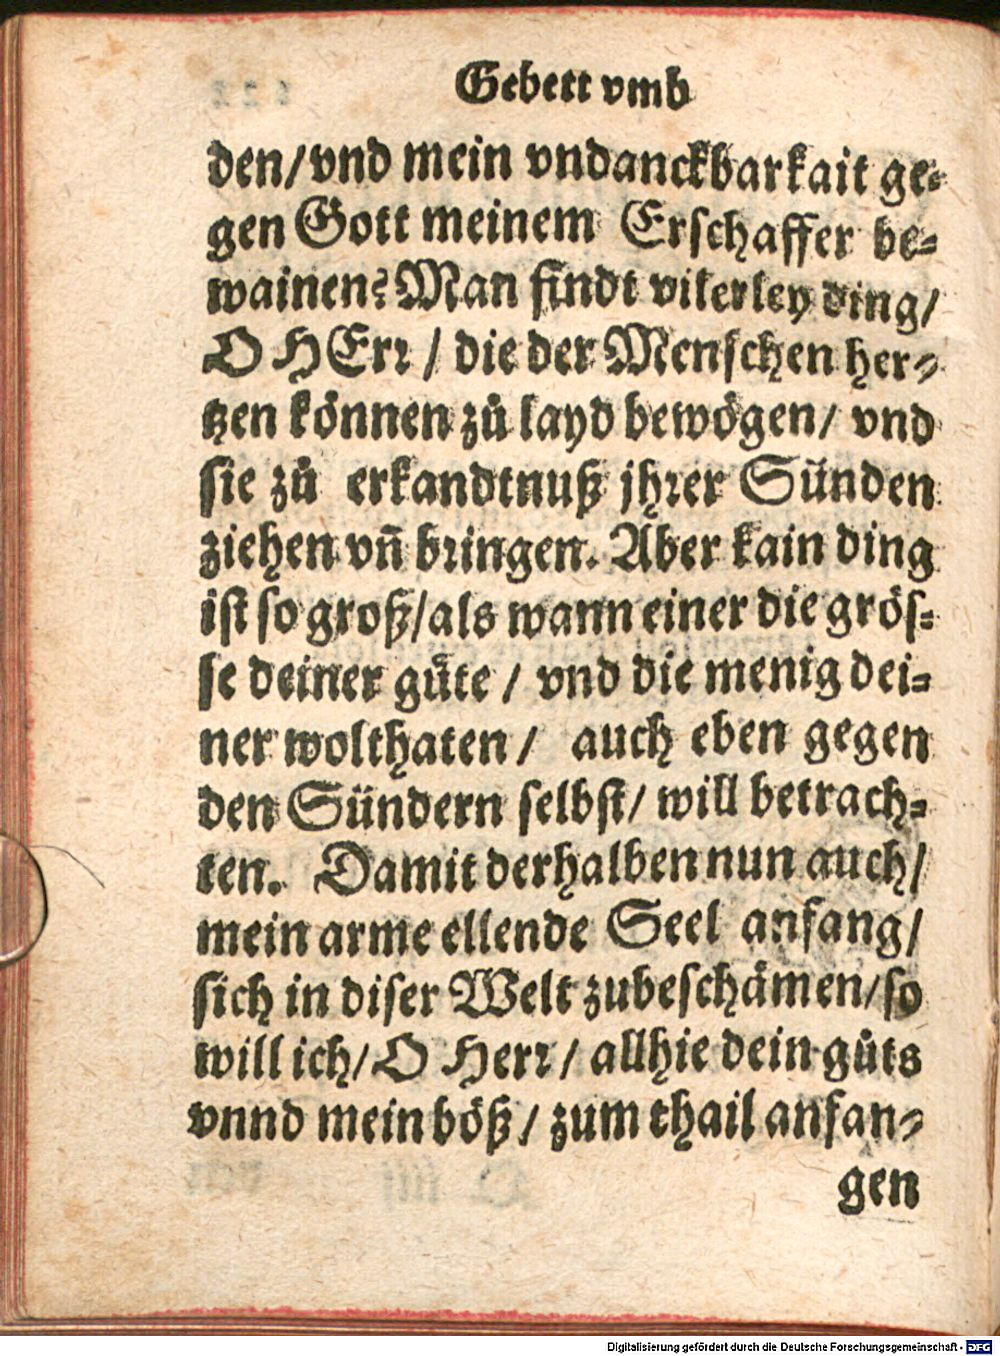 Gebett vmb
den/vnd mein vndanckbarkait ge-
gen Gott meinem Erschaffer be-
wainen? Man findt vilerley ding/
O HErr / die der Menschen her-
tzen können zů layd bewögen/ vnd
sie zů erkandtnuß jhrer Sünden
ziehen vñ bringen. Aber kain ding
ist so groß/als wann einer die grös-
se deiner gůte / vnd die menig dei-
ner wolthaten / auch eben gegen
den Sündern selbst/ will betrach-
ten. Damit derhalben nun auch/
mein arme ellende Seel anfang/
sich in diser Welt zubeschämen/so
will ich/O Herr / allhie dein gůts
vnnd mein böß / zum thail anfan-
gen
Digitalisierung gefördert durch die Deutsche Forschungsgemeinschaft - DFG